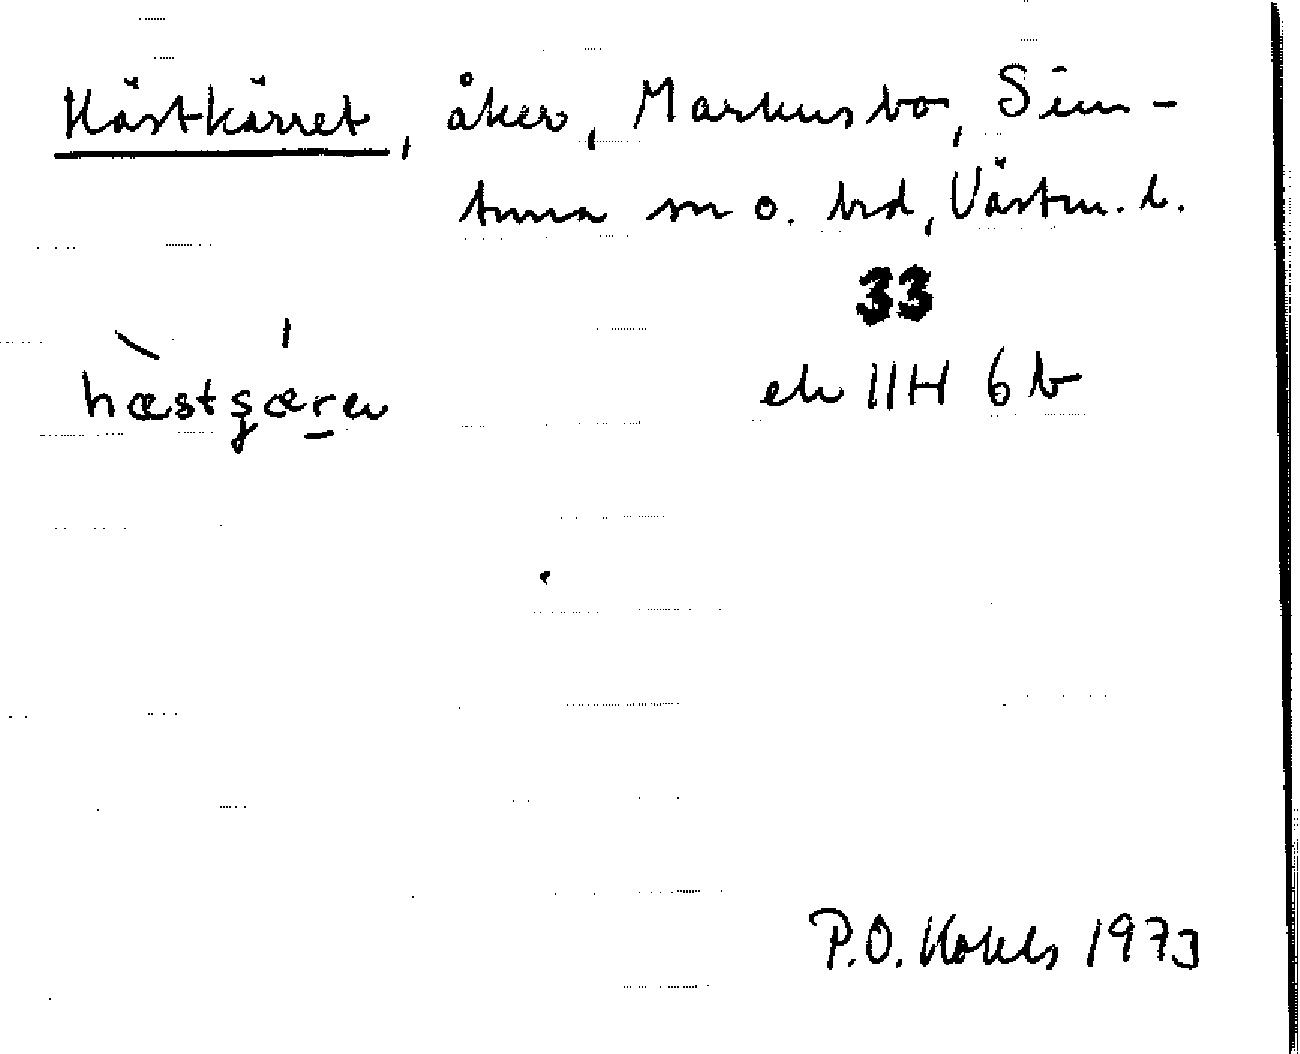 Hästkärret, åker, Markusbo, Sim-
tuna sn o. hd, Västm. l.
33
hæstʂære
ek 11H 6b
P.O. Kohls 1973